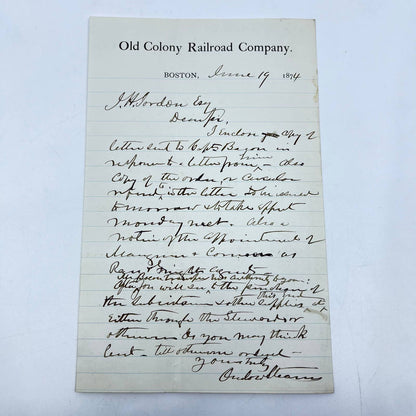 Old Colony Railroad Company.
BOSTON, June 19 1874
J. H. Gordon Esq
Dear Sir,
I enclose copy of
letter sent to Capt Bacon in
response to a letter from him - also
copy of the order, or Circular
referred to in the letter to be issued
tomorrow to take effect
Monday next. Also a
notice of the appointment of
as
Pass & Freight Agents
After
you will see to the purchase of
the & other supplies
either through the Steward or
otherwise as you may think
best - till otherwise ordered -
Yours truly
Onslow Stearns